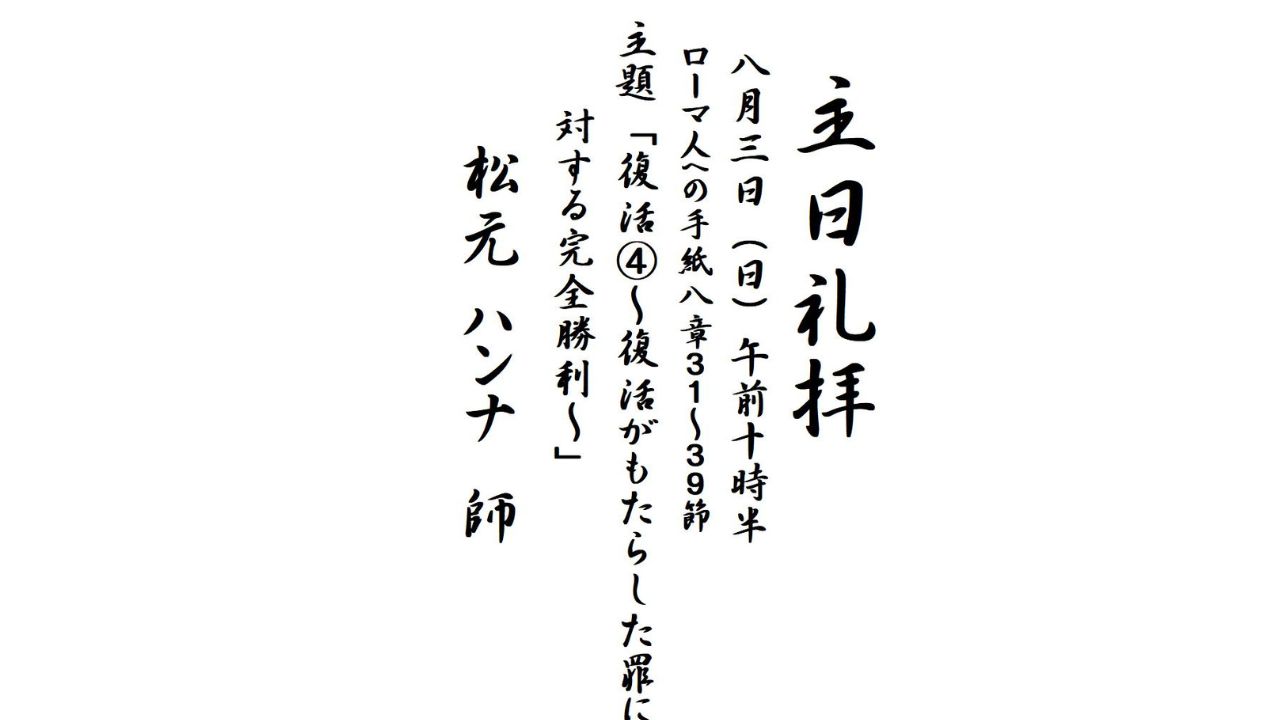 主日礼拝
八月三日（日）午前十時半
ローマ人への手紙八章31～39節
主題「復活④～復活がもたらした罪に
対する完全勝利～」
松元 ハンナ 師